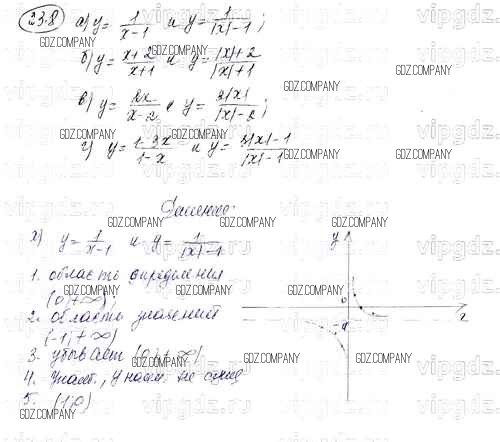 23.8 а) y = 1/(x-1) и y = 1/(|x|-1);
б) y = (x+2)/(x+1) и y = (|x|+2)/(|x|+1)
в) y = 2x/(x-2) и y = 2|x|/(|x|-2);
г) y = (1-3x)/(1-x) и y = (3|x|-1)/(|x|-1)
Решение:
y = 1/(x-1) и y = 1/(|x|-1)
1. область определения
(0; +∞);
2. область значений
(-1; +∞)
3. убывает (0; +∞)
4. yнаиб., yнаим. не сущ
5. (1;0)
y
0
GDZ.COMPANY
vipgdz.ru